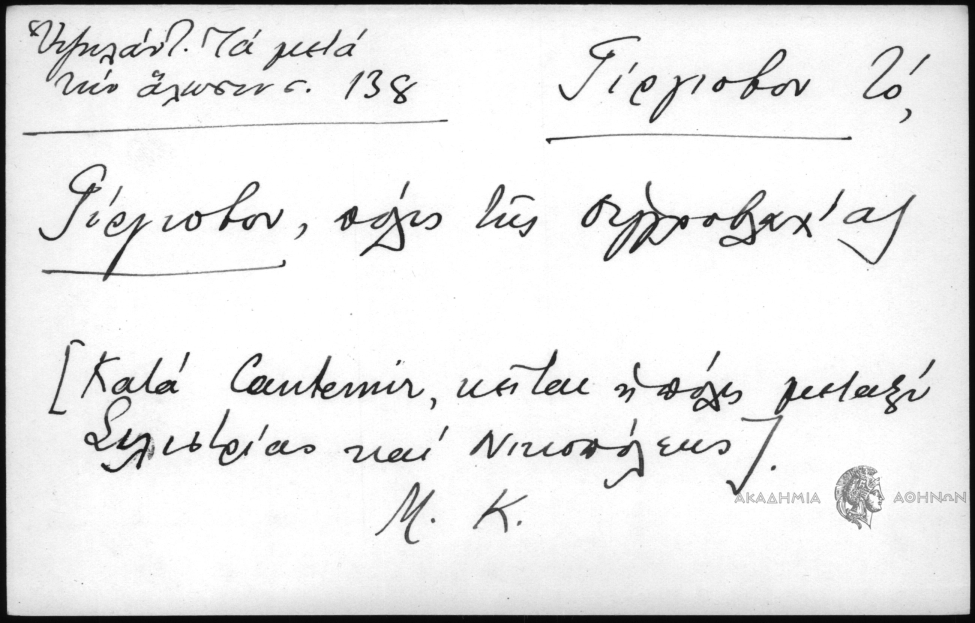 Ὑψηλάντ. Τά μετά
τήν ἅλωσιν σ. 138
Γίργιοβον τό,
Γίργιοβον, πόλις τῆς Οὑγγροβλαχίας
[Κατά Cantemir, κεῖται ἡ πόλις μεταξύ
Σιλιστρίας καί Νικοπόλεως].
Μ. Κ.
ΑΚΑΔΗΜΙΑ ΑΘΗΝΩΝ